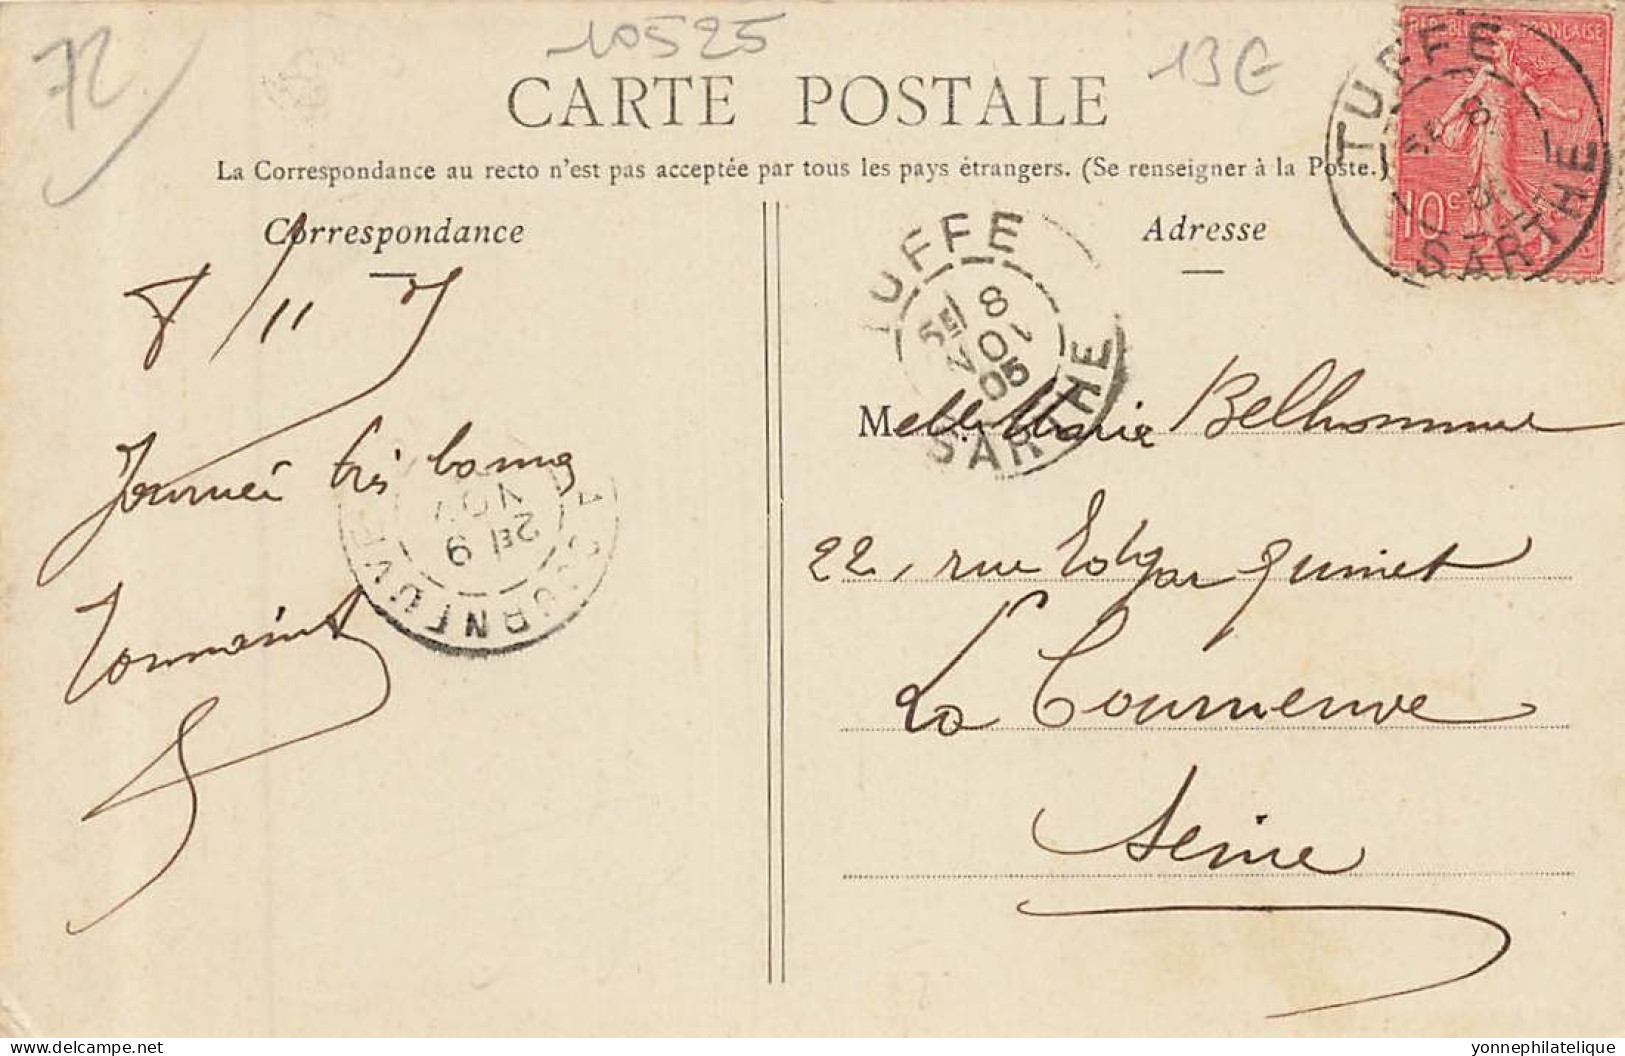 72
10525
13€
CARTE POSTALE
La Correspondance au recto n'est pas acceptée par tous les pays étrangers. (Se renseigner à la Poste.)
Correspondance
Adresse
RÉPUBLIQUE FRANÇAISE
10c
TUFFE
8
SARTHE
TUFFE
5E 8
NOV
05
SARTHE
8/11 5
Journée très bonne
Toussaint
2E 9
NOV
LA COURNEUVE
Melle Marie Belhomme
22, rue Edgar Quinet
La Courneuve
Seine
yonnephilatelique